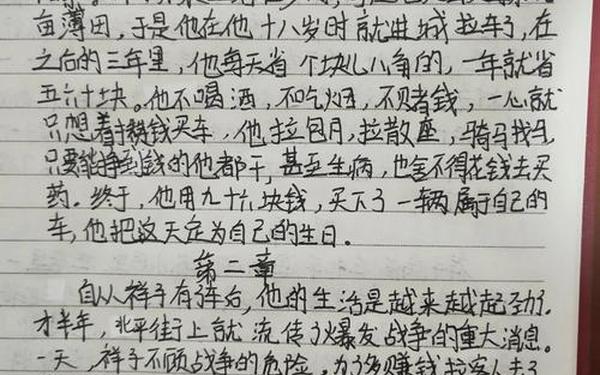 亩薄田,于是他在他十八岁时就进城拉车了,在
之后的三年里,他每天省个块儿八角的,一年就省
五六十块。他不喝酒,不吃烟,不赌钱,一心就
只想着挣钱买车,他拉包月,拉散座,骑马找马,
只要能挣到钱的他都干,甚至生病,也舍不得花钱去买
药。终于,他用九十六块钱,买下了一辆属于自己的
车,他把这天定为自己的生日。
第二章
自从祥子有了车后,他的生活是越来越起劲了。
才半年,北平街上就流传了爆发战争的重大消息。
一天,祥子不顾战争的危险,为了多赚钱拉客人去了